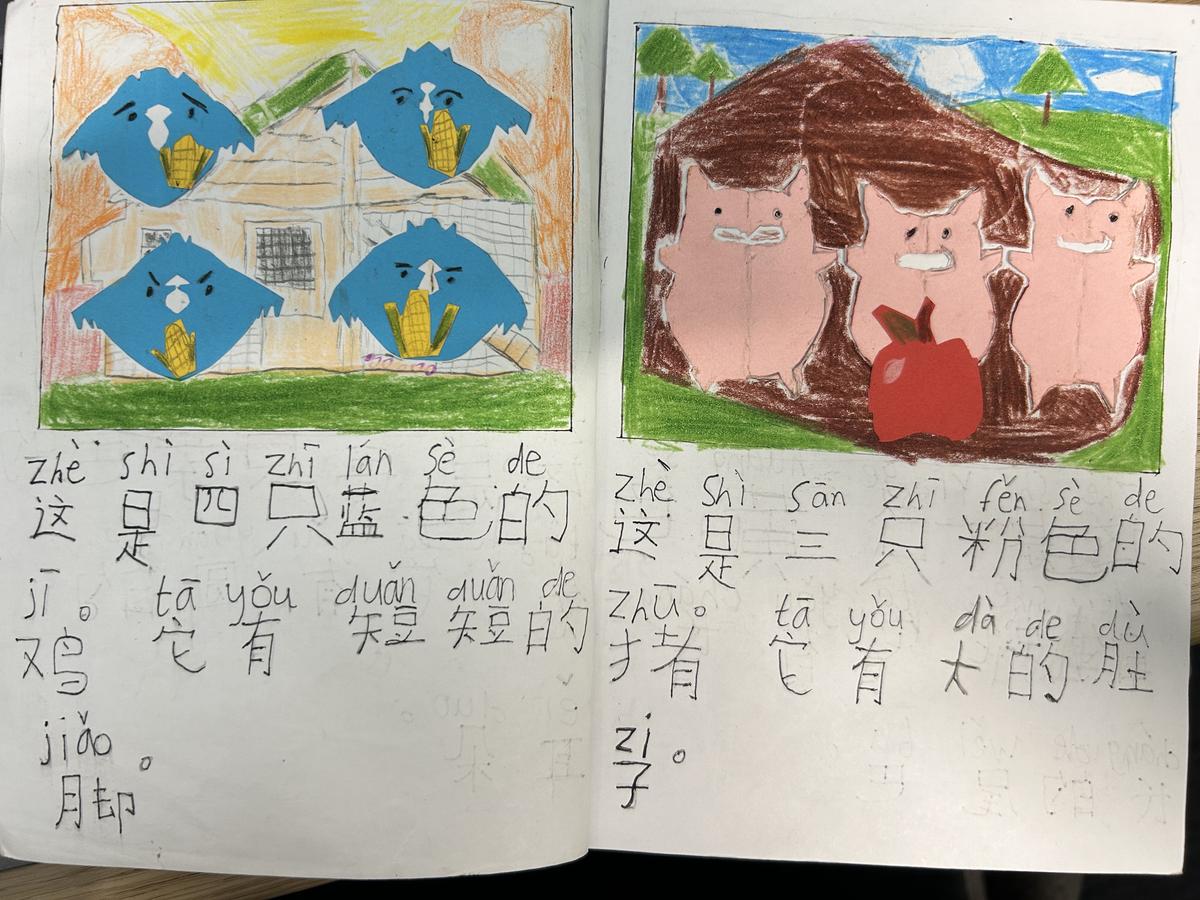 zhè shì sì zhī lán sè de
这是四只蓝色的
jī。 tā yǒu duǎn duǎn de
鸡 它有短短的
jiǎo。
脚
zhè shì sān zhī fěn sè de
这是三只粉色的
zhū。 tā yǒu dà de dù
猪 它有大的肚
zi。
子